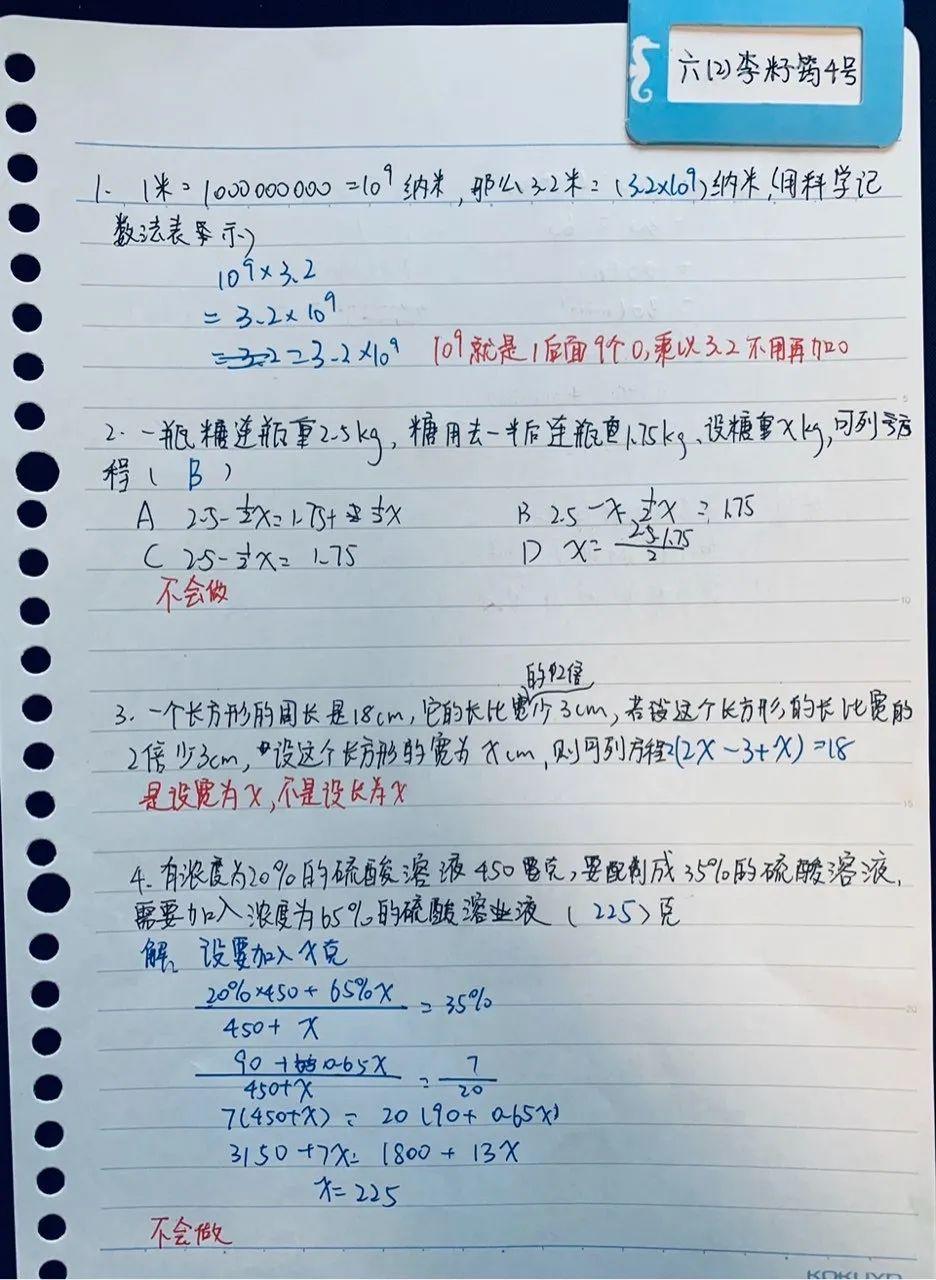 六(2)李籽筠4号
1. 1米=1000000000=10⁹纳米,那么3.2米=(3.2×10⁹)纳米(用科学记
数法表示)
10⁹×3.2
=3.2×10⁹
=3.2×10⁹ 10⁹就是1后面9个0,乘以3.2不用再加0
2. 一瓶糖连瓶重2.5kg,糖用去一半后连瓶重1.75kg、设糖重xkg,可列方
程( B )
A 2.5-½x=1.75+½x B 2.5-x-½x=1.75
C 2.5-½x=1.75 D x=(2.5-1.75)/2
不会做
的2倍
3. 一个长方形的周长是18cm,它的长比宽少3cm,若设这个长方形的长比宽的
2倍少3cm,设这个长方形的宽为xcm,则可列方程2(2x-3+x)=18
是设宽为x,不是设长为x
4. 有浓度为20%的硫酸溶液450克,要配制成35%的硫酸溶液,
需要加入浓度为65%的硫酸溶液(225)克
解、设要加入x克
(20%×450+65%x)/(450+x)=35%
(90+0.65x)/(450+x)=7/20
7(450+x)=20(90+0.65x)
3150+7x=1800+13x
x=225
不会做
KOKUYO